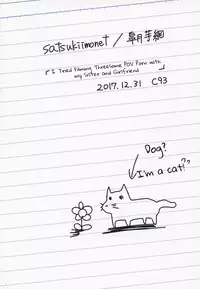 satsukiimonet / 皐月芋網
『I Tried Filming Threesome POV Porn with
my Sister and Girlfriend』
2017.12.31 C93
Dog?
I'm a cat!?